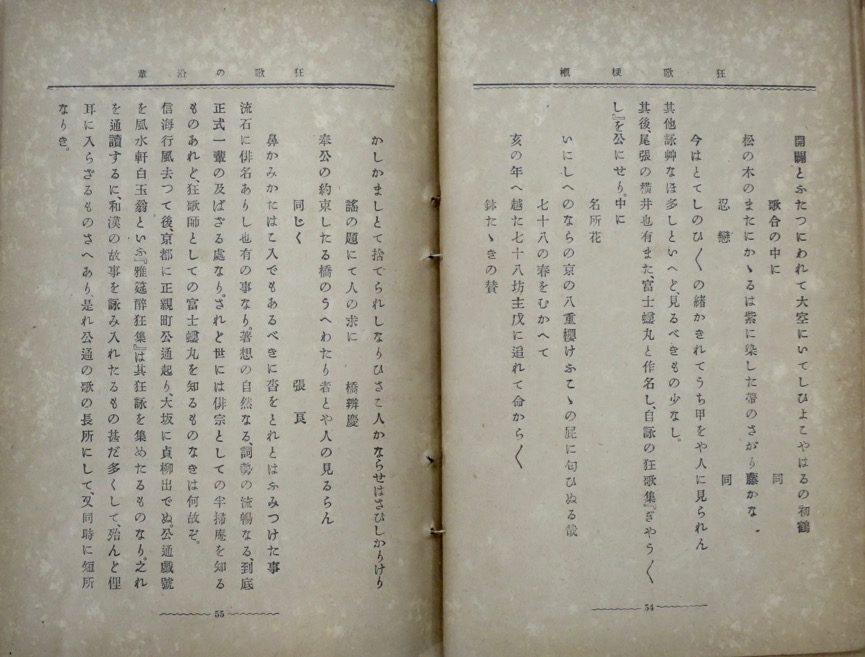 狂歌梗概
開闢とふたつにわれて大空にいてしひよこやはるの初鶴
歌合の中に 同
松の木のまたにかゝるは紫に染した帶のさがり藤かな
忍戀 同
今はとてしのひ〳〵の緒かきれてうち甲をや人に見られん
其他詠艸なほ多しといへど、見るべきもの少なし。
其後、尾張の橫井也有また、富士蟋丸と作名し、自詠の狂歌集『ぎやう〳〵
し』を公にせり。中に
名所花
いにしへのならの京の八重櫻けふこゝの屁に匂ひぬる哉
七十八の春をむかへて
亥の年へ越た七十八坊主戊に追れて命から〳〵
鉢たゝきの賛
54
狂歌の沿革
かしかましとて捨てられしなりひさこ人かならせはさびしかりけり
謠の題にて人の求に 橋辨慶
奉公の約束したる橋のうへわたり者とや人の見るらん
同じく 張良
鼻かみかたはこ入でもあるべきに沓をとれとはふみつけた事
流石に俳名ありし也有の事なり。著想の自然なる、詞勢の流暢なる、到底
正式一輩の及ばざる處なり。されど世には俳宗としての半掃庵を知る
ものあれど、狂歌師としての富士蟋丸を知るものなきは何故ぞ。
信海行風去つて後、京都に正親町公通起り、大坂に貞柳出でぬ。公通戲號
を風水軒白玉翁といふ『雅筵醉狂集』は其狂詠を集めたるものなり。之れ
を通讀するに、和漢の故事を詠み入れたるもの甚だ多くして、殆んと俚
耳に入らざるものさへあり、是れ公通の歌の長所にして、又同時に短所
なりき。
55